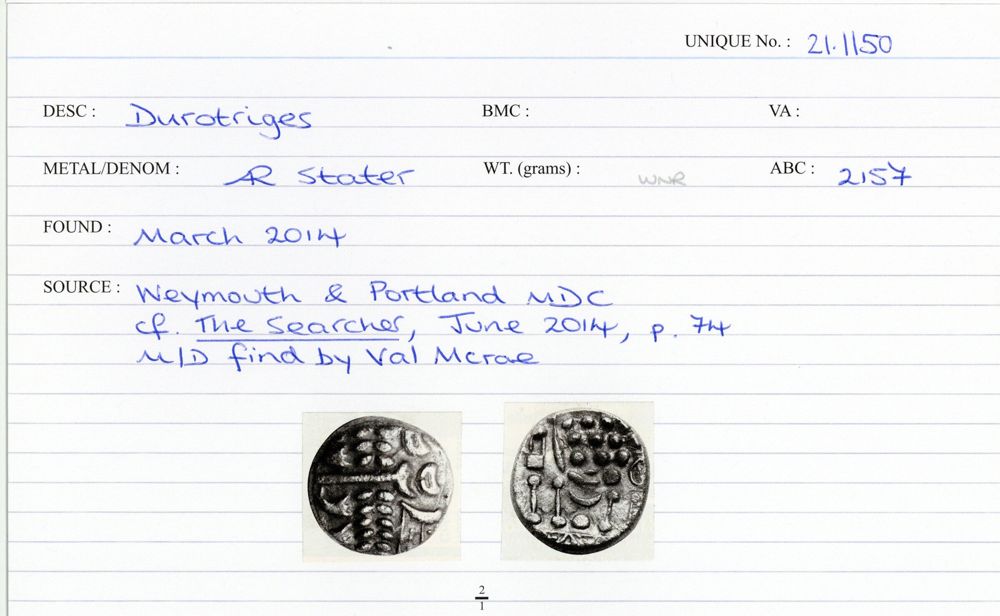 UNIQUE No. : 21.1150
DESC : Durotriges BMC : VA :
METAL/DENOM : AR Stater WT. (grams) : WNR ABC : 2157
FOUND : March 2014
SOURCE : Weymouth & Portland MDC
cf. The Searcher, June 2014, p. 74
M/D find by Val Mcrae
2
1